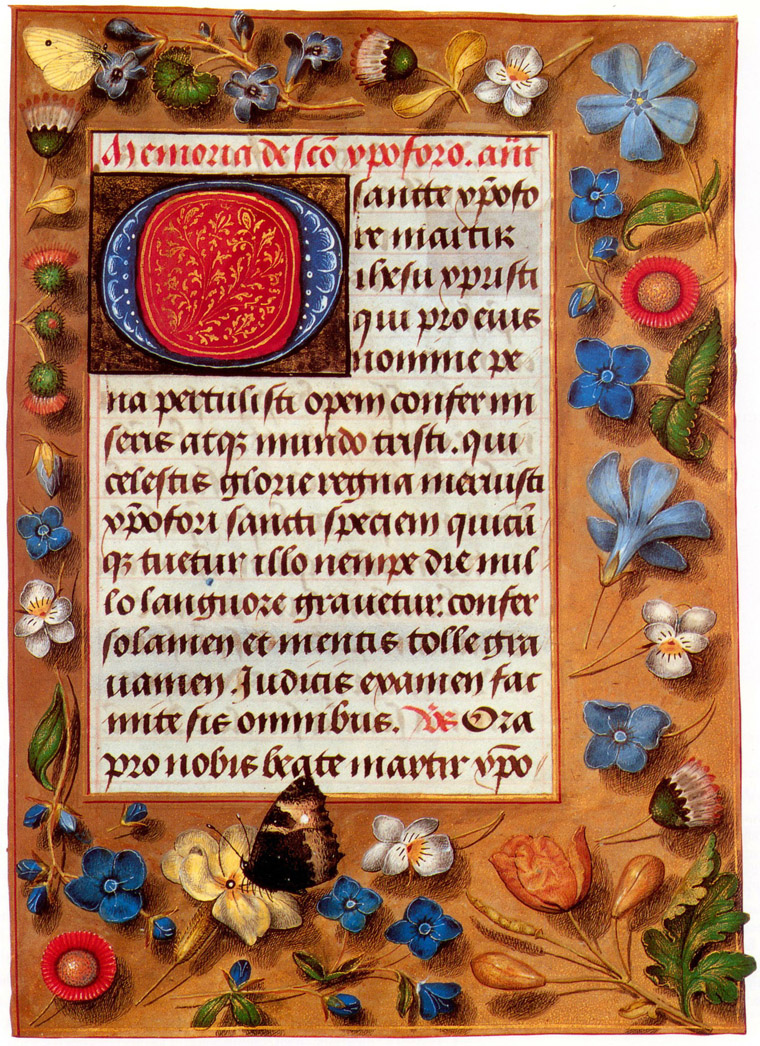 Memoria de scõ xpoforo. añt
Sancte xpõfo
re martir
ihesu xpristi
qui pro eius
nomine pe
na pertulisti opem confer mi
seris atqȝ mundo tristi. qui
celestis glorie regna meruisti
xpõfori sancti speciem quicũ
qȝ tuetur illo nempe die nul
lo languore grauetur. confer
solamen et mentis tolle gra
uamen. Iudicis examen fac
mite sis omnibus. Vs̃ Ora
pro nobis beate martir xpõ